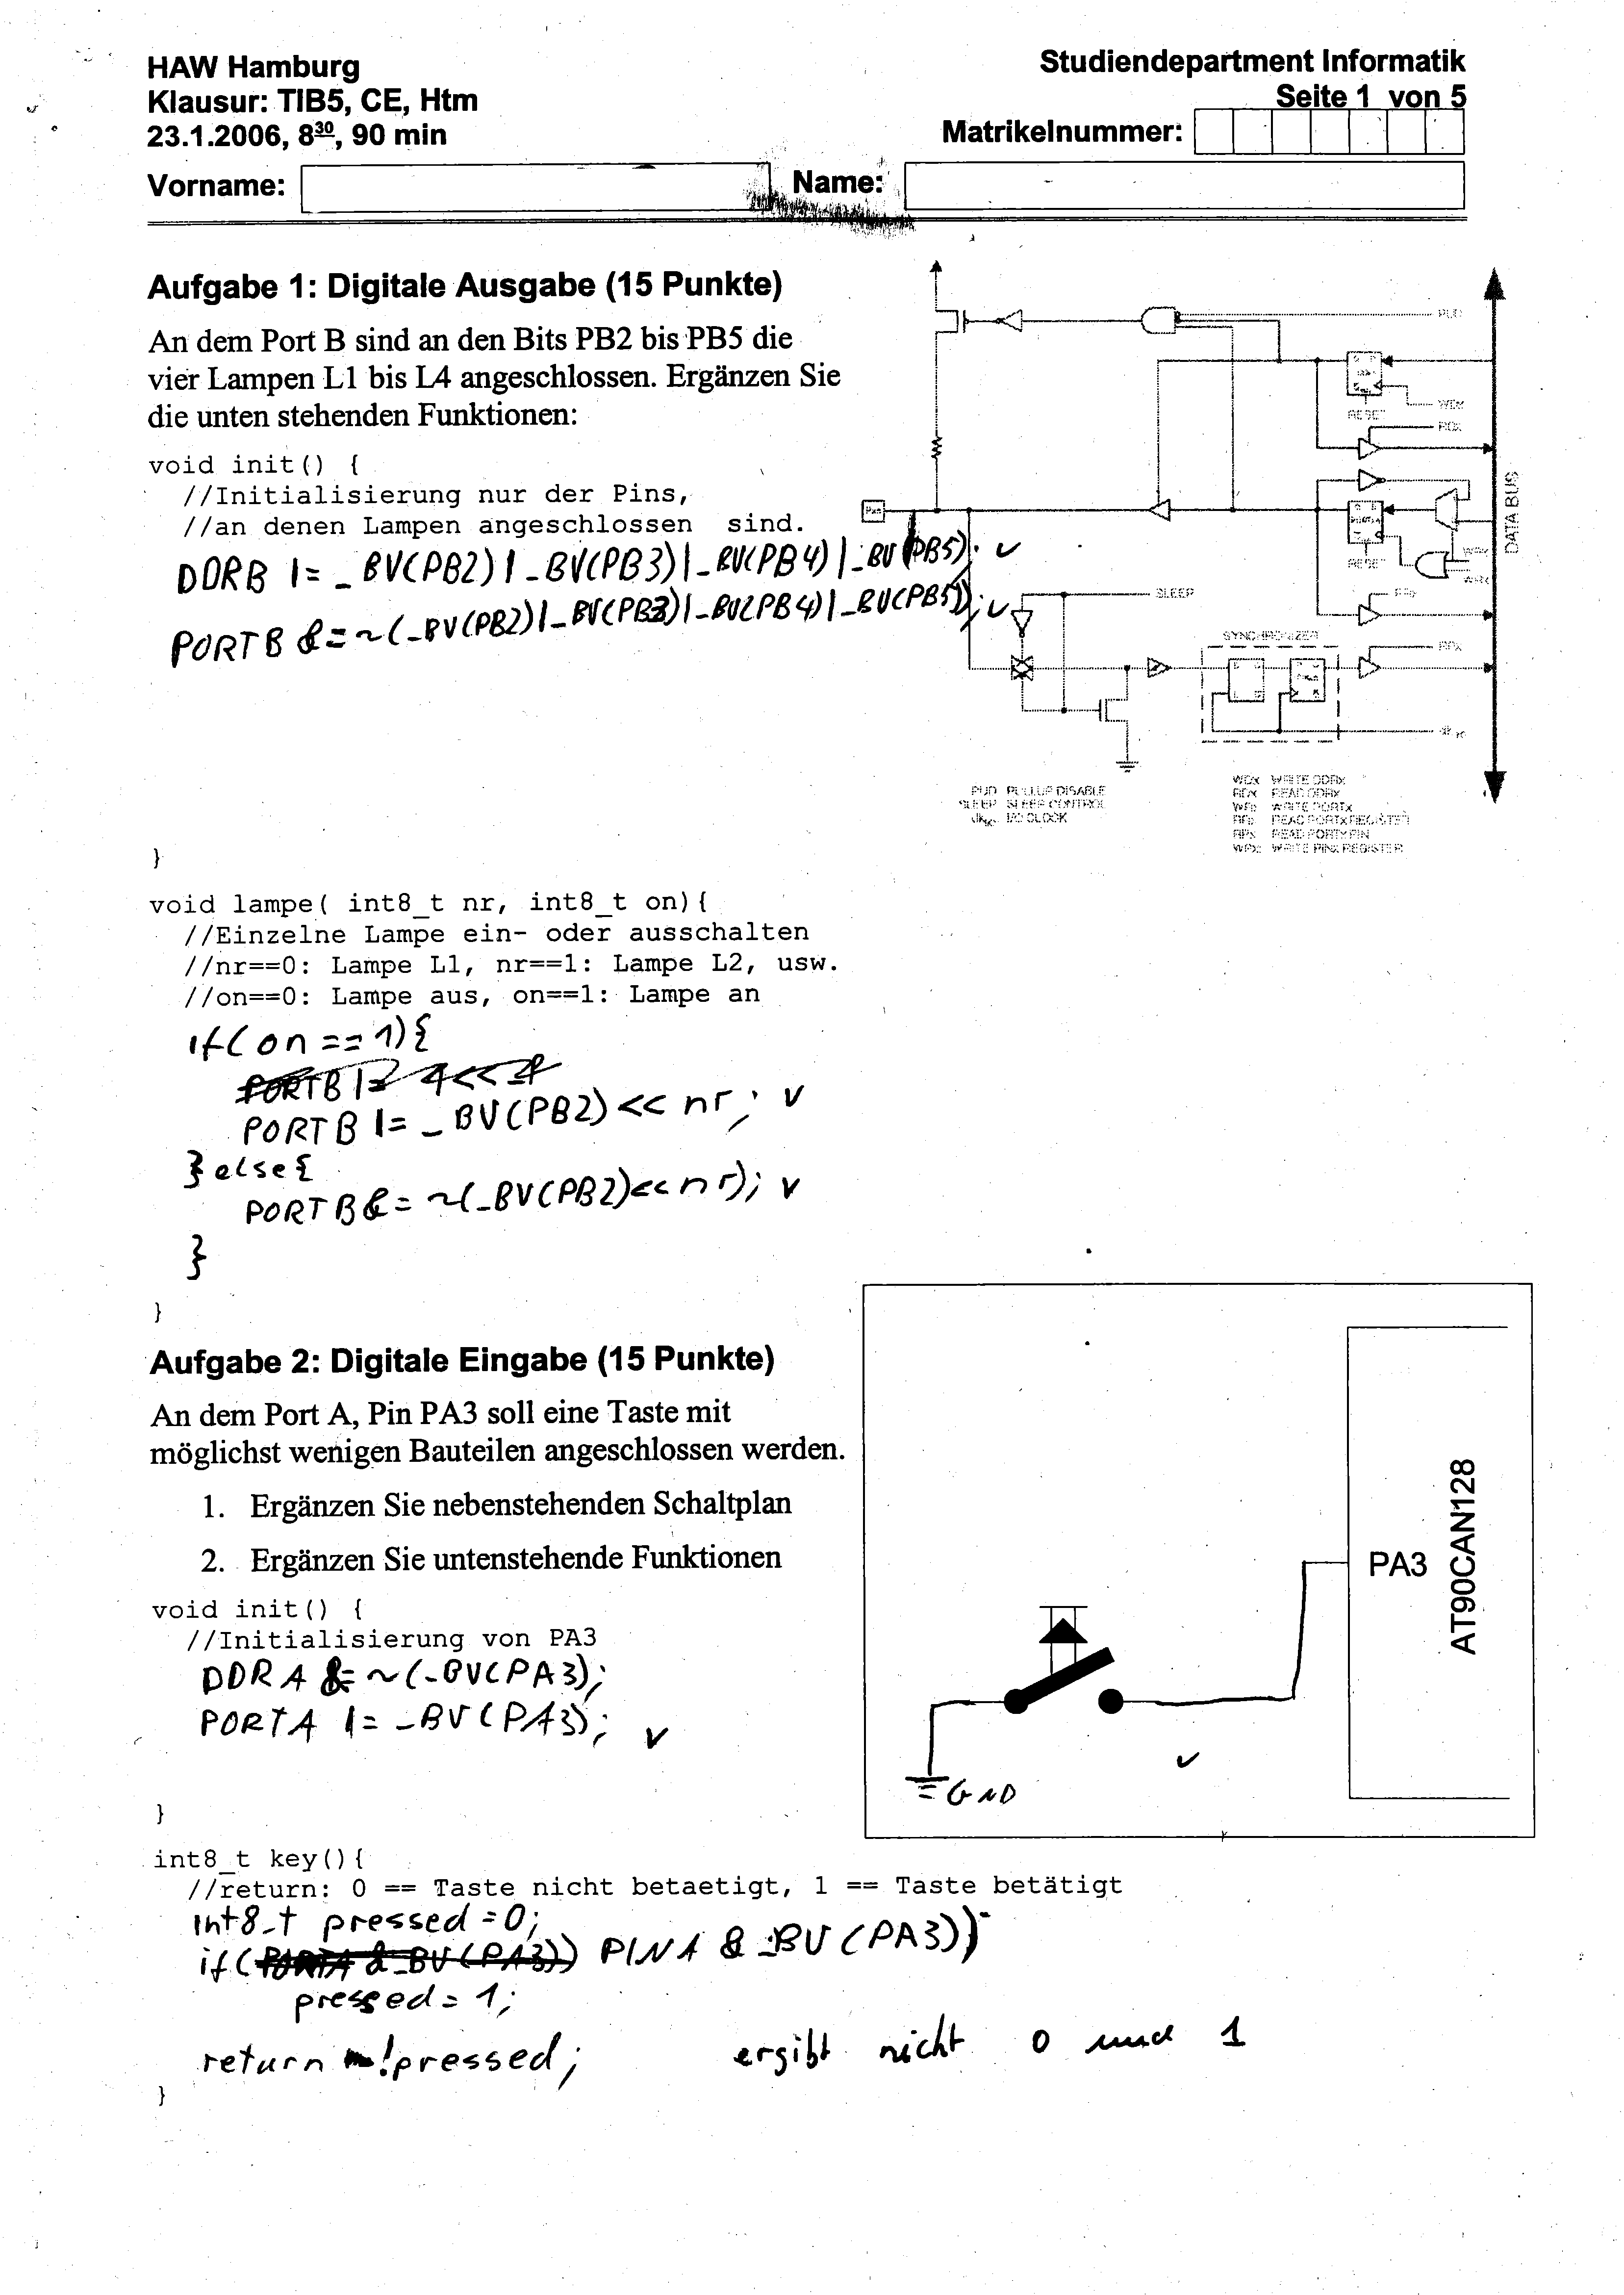 HAW Hamburg
Klausur: TIB5, CE, Htm
23.1.2006, 8³⁰, 90 min
Studiendepartment Informatik
Seite 1 von 5
Matrikelnummer:
Vorname:
Name:
Aufgabe 1: Digitale Ausgabe (15 Punkte)
An dem Port B sind an den Bits PB2 bis PB5 die
vier Lampen L1 bis L4 angeschlossen. Ergänzen Sie
die unten stehenden Funktionen:
void init() {
//Initialisierung nur der Pins,
//an denen Lampen angeschlossen sind.
DDRB |= _BV(PB2) | _BV(PB3) | _BV(PB4) | _BV(PB5); ✓
PORTB &= ~(_BV(PB2) | _BV(PB3) | _BV(PB4) | _BV(PB5)); ✓
}
PUD
RESET
WDx
RDx
Pxn
DATA BUS
RESET
SLEEP
SYNCHRONIZER
RPx
PUD: PULLUP DISABLE
SLEEP: SLEEP CONTROL
clk I/O: I/O CLOCK
WDx: WRITE DDRx
RDx: READ DDRx
WPx: WRITE PORTx
RRx: READ PORTx REGISTER
RPx: READ PORTx PIN
WPx: WRITE PINx REGISTER
void lampe( int8_t nr, int8_t on){
//Einzelne Lampe ein- oder ausschalten
//nr==0: Lampe L1, nr==1: Lampe L2, usw.
//on==0: Lampe aus, on==1: Lampe an
if( on == 1){
PORTB |= _BV(PB2) << nr; ✓
}else{
PORTB &= ~(_BV(PB2)<<nr); ✓
}
}
Aufgabe 2: Digitale Eingabe (15 Punkte)
An dem Port A, Pin PA3 soll eine Taste mit
möglichst wenigen Bauteilen angeschlossen werden.
1. Ergänzen Sie nebenstehenden Schaltplan
2. Ergänzen Sie untenstehende Funktionen
void init() {
//Initialisierung von PA3
DDRA &= ~(_BV(PA3);
PORTA |= _BV(PA3); ✓
}
PA3
AT90CAN128
GND
✓
int8_t key(){
//return: 0 == Taste nicht betaetigt, 1 == Taste betätigt
int8_t pressed = 0;
if( PINA & _BV(PA3))
pressed = 1;
return !pressed;
ergibt nicht 0 und 1
}